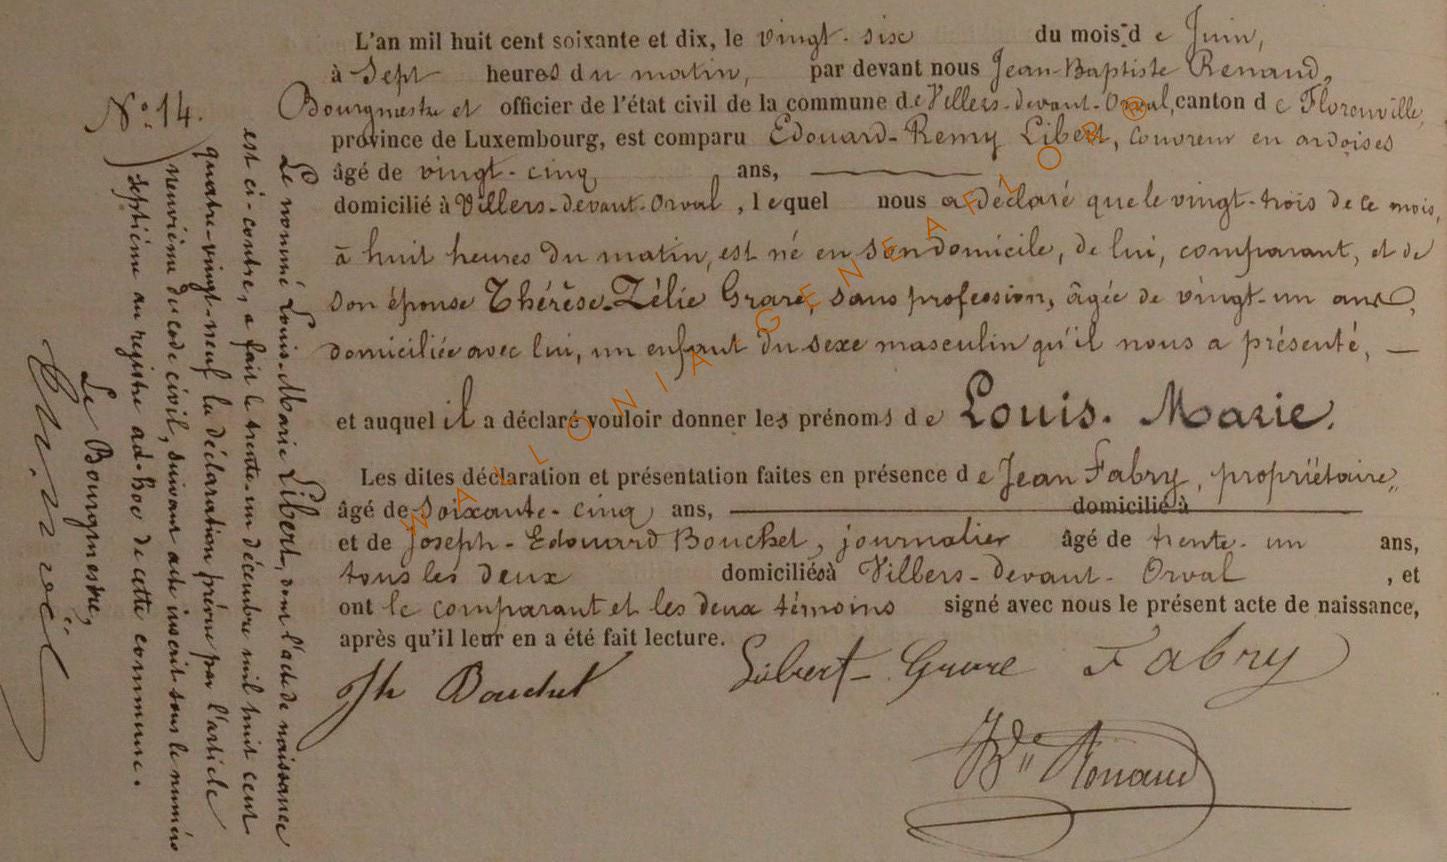 L'an mil huit cent soixante et dix, le vingt-six du mois de Juin,
à Sept heures du matin, par devant nous Jean-Baptiste Renaud,
Bourgmestre et officier de l'état civil de la commune de Villers-devant-Orval, canton de Florenville,
province de Luxembourg, est comparu Edouard-Remy Libert, couvreur en ardoises
âgé de vingt-cinq ans,
domicilié à Villers-devant-Orval, lequel nous a déclaré que le vingt-trois de ce mois,
à huit heures du matin, est né en son domicile, de lui, comparant, et de
son épouse Thérèse-Zélie Grare, sans profession, âgée de vingt-un ans,
domiciliée avec lui, un enfant du sexe masculin qu'il nous a présenté,
et auquel il a déclaré vouloir donner les prénoms de Louis-Marie.
Les dites déclaration et présentation faites en présence de Jean Fabry, propriétaire,
âgé de soixante-cinq ans, domicilié à
et de Joseph-Edouard Bouchet, journalier âgé de trente-un ans,
tous les deux domiciliés à Villers-devant-Orval, et
ont le comparant et les deux témoins signé avec nous le présent acte de naissance,
après qu'il leur en a été fait lecture.
Jh Bouchet Libert-Grare Fabry
Renaud
No. 14.
Le nommé Louis-Marie Libert, dont l'acte de naissance
est ci-contre, a fait le trente-un décembre mil huit cent
quatre-vingt-neuf la déclaration prévue par l'article
neuvième du code civil, suivant acte inscrit sous le numéro
septième au registre ad-hoc de cette commune.
Le Bourgmestre,
WALLONIA GENEAFLOR®